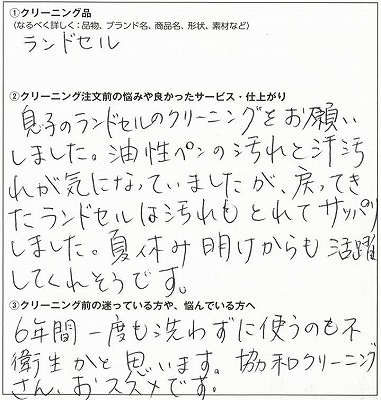 ①クリーニング品
(なるべく詳しく：品物、ブランド名、商品名、形状、素材など)
ランドセル
②クリーニング注文前の悩みや良かったサービス・仕上がり
息子のランドセルのクリーニングをお願い
しました。油性ペンの汚れと汗汚
れが気になっていましたが、戻ってき
たランドセルは汚れもとれてサッパリ
しました。夏休み明けからも活躍
してくれそうです。
③クリーニング前の迷っている方や、悩んでいる方へ
6年間一度も洗わずに使うのも不
衛生かと思います。協和クリーニング
さん、おススメです。